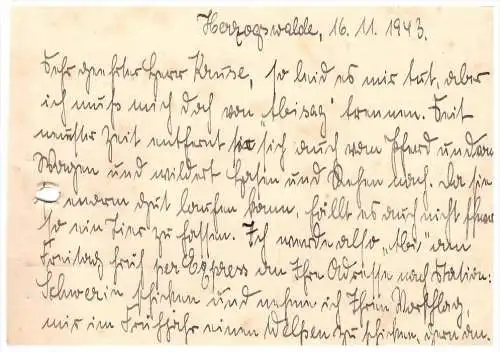 Herzogswalde, 16. 11. 1943.
Sehr geehrter Herr Kause, so leid es mir tut, aber
ich muß mich doch von „Ibisag" trennen. Seit
neuster Zeit entfernt sie sich auch vom Pferd und von
Wagen und wildert Hasen und Rehen nach. Da sie
enorm gut laufen kann, fällt es auch nicht schwer
so ein Tier zu fassen. Ich werde also „Ibi" am
Freitag früh per Express an Ihre Adresse nach Station:
Schwerin schicken und nehme ich Ihren Vorschlag,
mir im Frühjahr einen Welpen zu schicken, gern an.